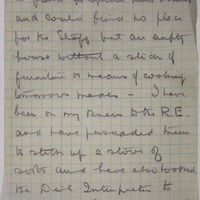 and could find no place
for the Staff but an empty
house without a stick of
furniture or means of cooking
tomorrows meals - I have
been on my knees to the R.E.
and have persuaded them
to stick up a stove of
sorts and have also
the Div. Interpreter to